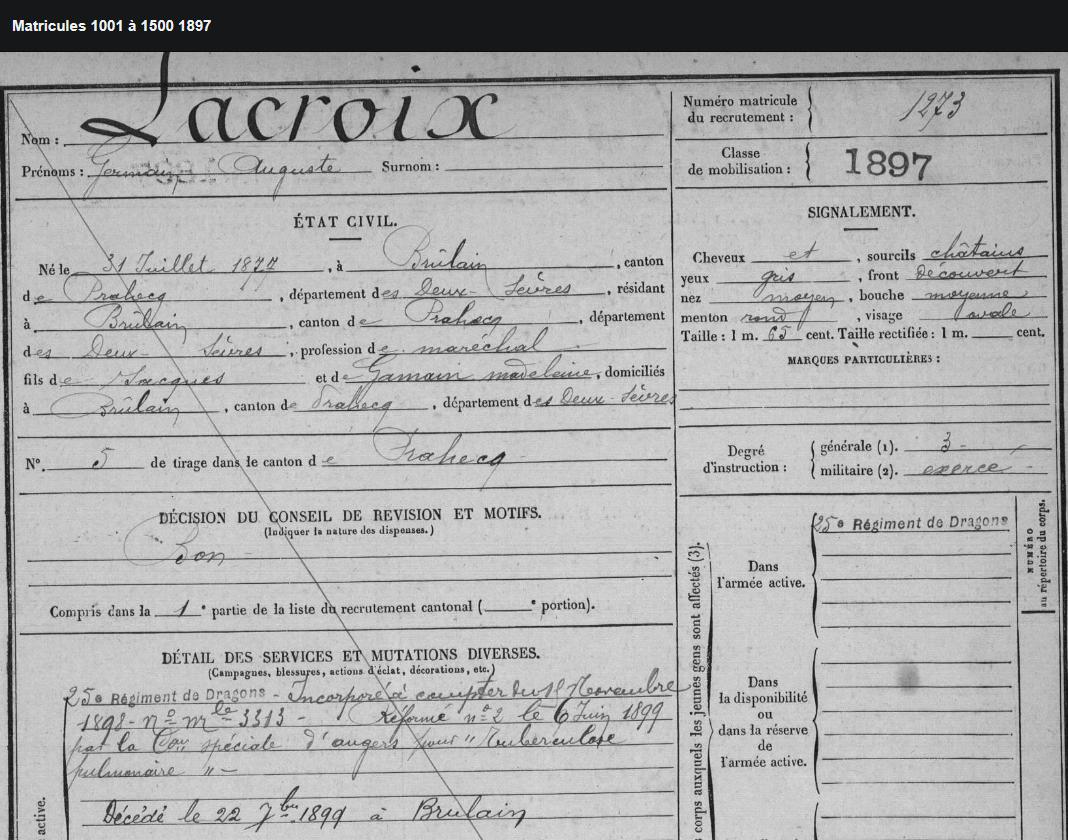 Matricules 1001 à 1500 1897
Nom : Lacroix
Prénoms : Germain Auguste Surnom :
Numéro matricule du recrutement : 1273
Classe de mobilisation : 1897
ÉTAT CIVIL.
Né le 31 Juillet 1877, à Brûlain, canton
de Prahecq, département des Deux-Sèvres, résidant
à Brûlain, canton de Prahecq, département
des Deux-Sèvres, profession de maréchal
fils de Jacques et de Gamain madeleine, domiciliés
à Brûlain, canton de Prahecq, département des Deux-Sèvres
N° 5 de tirage dans le canton de Prahecq
SIGNALEMENT.
Cheveux et, sourcils châtains
yeux gris, front découvert
nez moyen, bouche moyenne
menton rond, visage ovale
Taille : 1 m. 65 cent. Taille rectifiée : 1 m. cent.
MARQUES PARTICULIÈRES :
Degré d'instruction :
générale (1). 3
militaire (2). exercé
DÉCISION DU CONSEIL DE REVISION ET MOTIFS.
(Indiquer la nature des dispenses.)
Bon
Compris dans la 1e partie de la liste du recrutement cantonal ( e portion).
DÉTAIL DES SERVICES ET MUTATIONS DIVERSES.
(Campagnes, blessures, actions d'éclat, décorations, etc.)
25e Régiment de Dragons - Incorporé à compter du Novembre
1898 - no mle 3313 - Réformé no 2 le 6 Juin 1899
par la Con spéciale d'angers pour "Tuberculose
pulmonaire" -
Décédé le 22 7bre 1899 à Brulain
active.
corps auxquels les jeunes gens sont affectés (3).
25e Régiment de Dragons
Dans l'armée active.
NUMÉRO au répertoire du corps.
Dans la disponibilité ou dans la réserve de l'armée active.